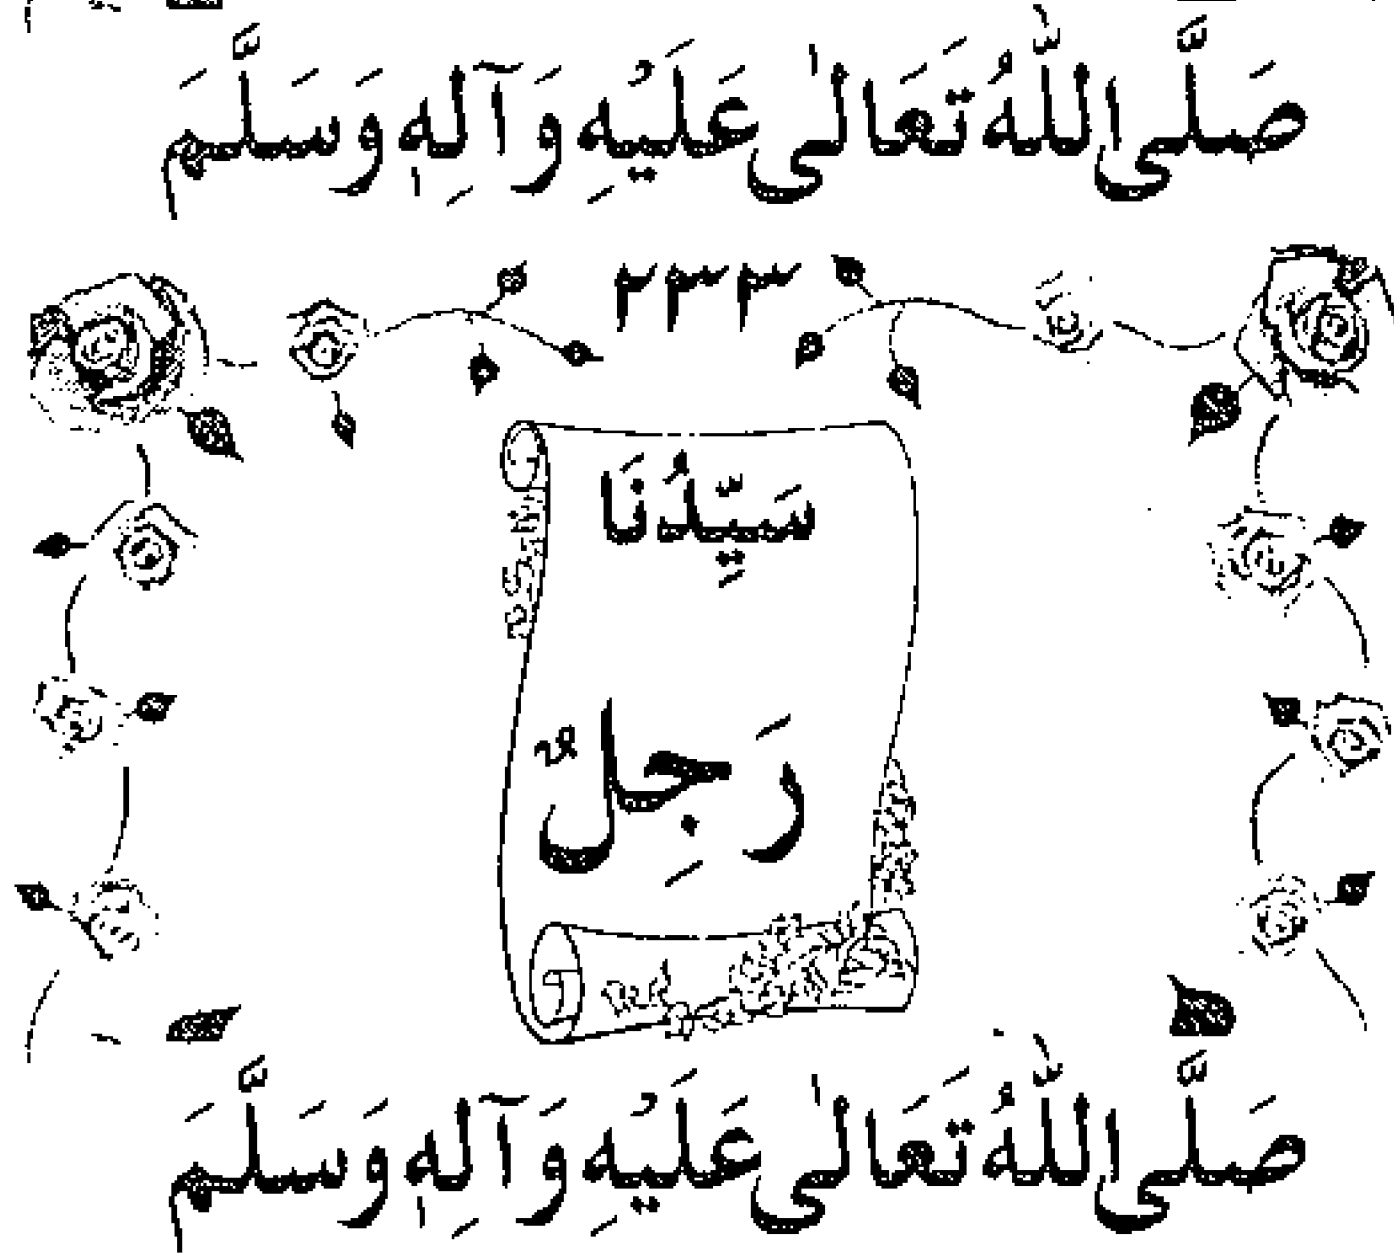 صَلَّى اللّٰهُ تَعَالٰى عَلَيْهِ وَآلِهٖ وَسَلَّمَ
٢٣٣
سَيِّدُنَا
رَجِلٌ
صَلَّى اللّٰهُ تَعَالٰى عَلَيْهِ وَآلِهٖ وَسَلَّمَ